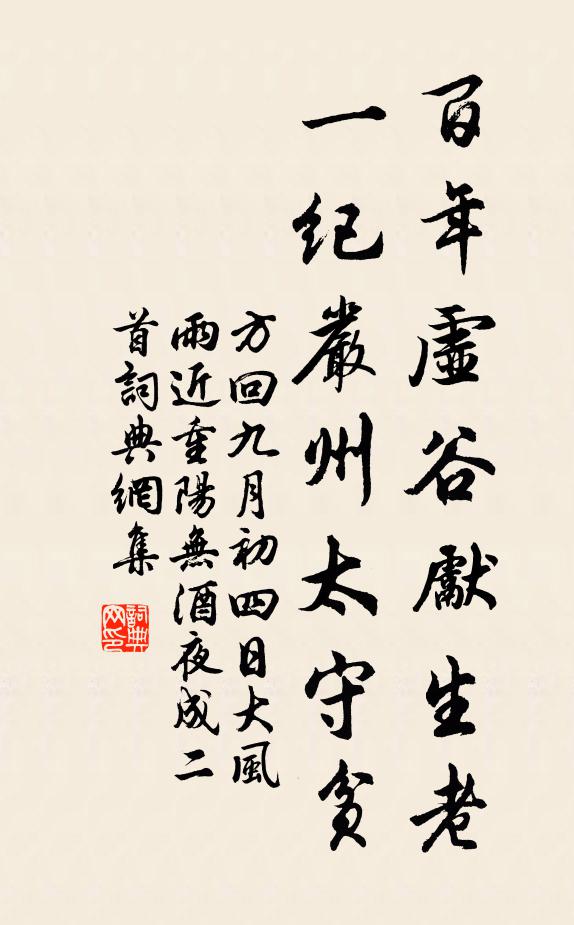 百年虛谷獻生老
一紀嚴州太守貧
方回九月初四日大風
雨近重陽無酒夜成二
首詞典網集
詞典
网印